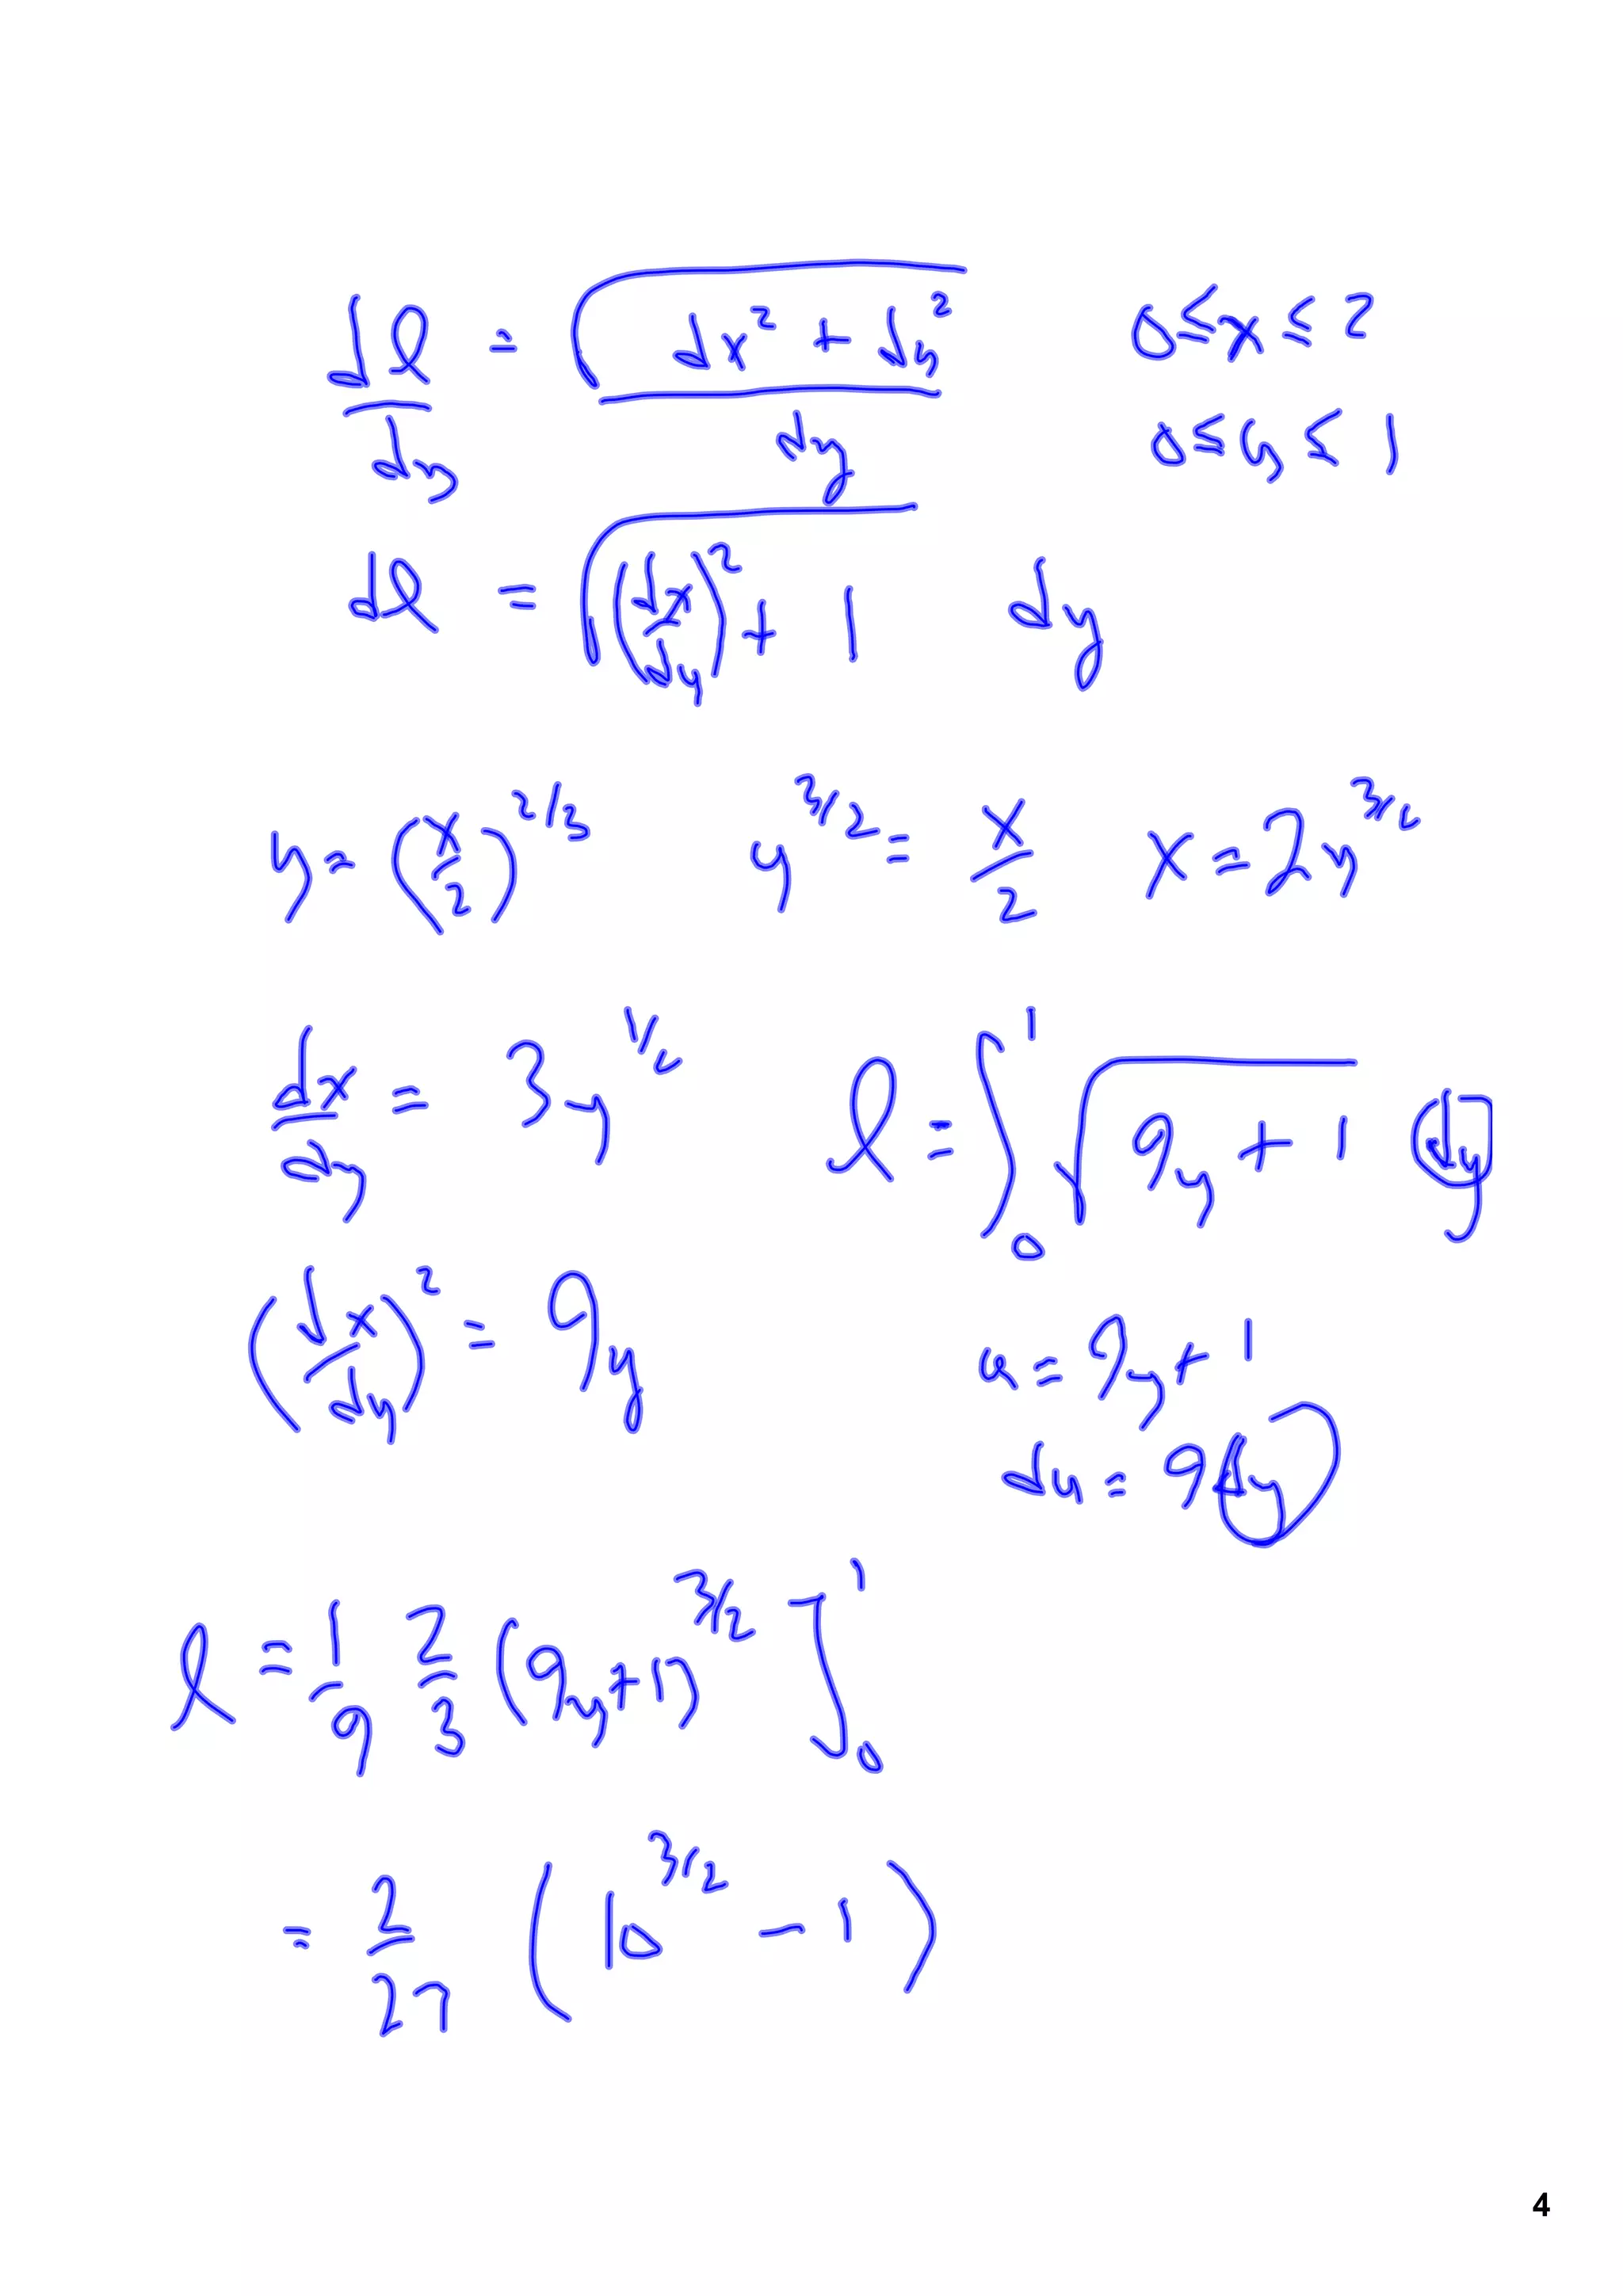 dl/dy = √(dx² + dy²)/dy 0 ≤ x ≤ 2
0 ≤ y ≤ 1
dl = √((dx/dy)² + 1) dy
y = (x/2)^2/3 y^3/2 = x/2 x = 2y^3/2
dx/dy = 3y^1/2 l = ∫₀¹ √(9y + 1) dy
(dx/dy)² = 9y u = 9y + 1
du = 9dy
l = 1/9 2/3 (9y + 1)^3/2 ]₀¹
= 2/27 (10^3/2 − 1)
4